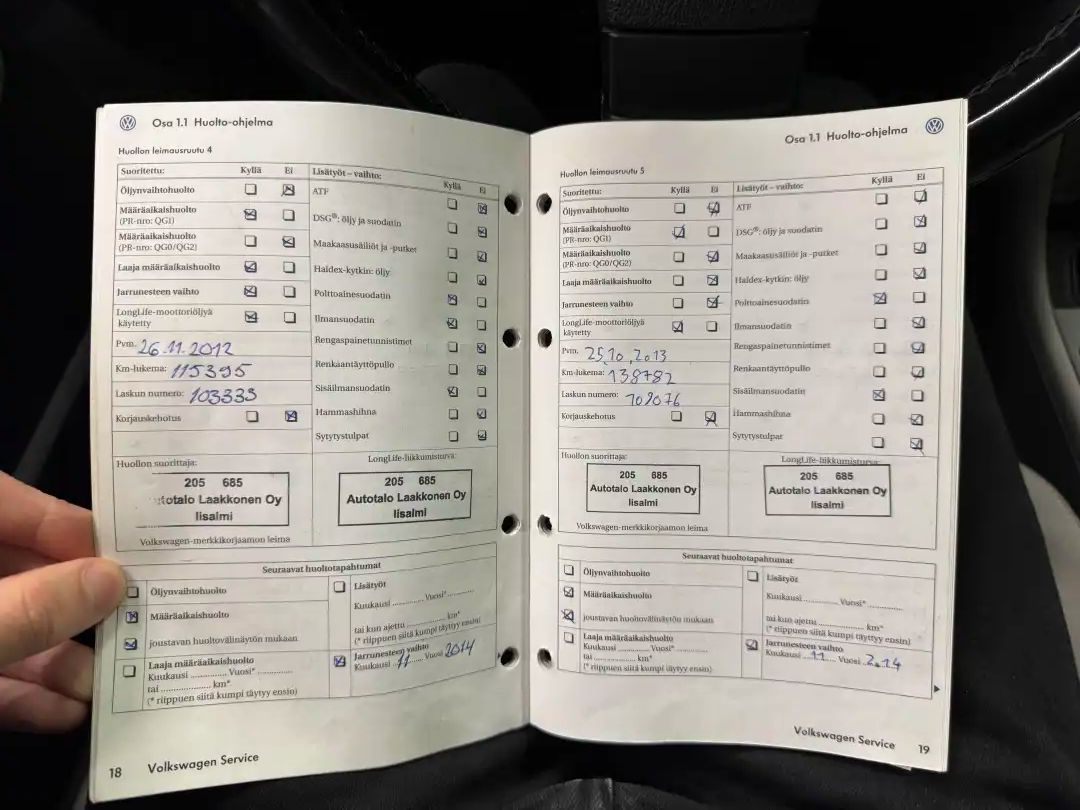 Osa 1.1 Huolto-ohjelma
Huollon leimausruutu 4
Suoritettu: Kyllä Ei
Öljynvaihtohuolto
Määräaikaishuolto
(PR-nro: QG1)
Määräaikaishuolto
(PR-nro: QG0/QG2)
Laaja määräaikaishuolto
Jarrunesteen vaihto
LongLife-moottoriöljyä
käytetty
Pvm. 26.11.2012
Km-lukema: 115395
Laskun numero: 103333
Korjauskehotus
Lisätyöt – vaihto: Kyllä Ei
ATF
DSG®: öljy ja suodatin
Maakaasusäiliöt ja -putket
Haldex-kytkin: öljy
Polttoainesuodatin
Ilmansuodatin
Rengaspainetunnistimet
Renkaantäyttöpullo
Sisäilmansuodatin
Hammashihna
Sytytystulpat
Huollon suorittaja:
205 685
totalo Laakkonen Oy
Iisalmi
Volkswagen-merkkikorjaamon leima
LongLife-liikkumisturva:
205 685
Autotalo Laakkonen Oy
Iisalmi
Seuraavat huoltotapahtumat
Öljynvaihtohuolto
Määräaikaishuolto
joustavan huoltovälinäytön mukaan
Laaja määräaikaishuolto
Kuukausi ............ Vuosi* ............
tai ................ km*
(* riippuen siitä kumpi täytyy ensin)
Lisätyöt
Kuukausi ............ Vuosi* ............
tai kun ajettu ................ km*
(* riippuen siitä kumpi täytyy ensin)
Jarrunesteen vaihto
Kuukausi 11 Vuosi 2014
18 Volkswagen Service
Osa 1.1 Huolto-ohjelma
Huollon leimausruutu 5
Suoritettu: Kyllä Ei
Öljynvaihtohuolto
Määräaikaishuolto
(PR-nro: QG1)
Määräaikaishuolto
(PR-nro: QG0/QG2)
Laaja määräaikaishuolto
Jarrunesteen vaihto
LongLife-moottoriöljyä
käytetty
Pvm. 25.10.2013
Km-lukema: 138782
Laskun numero: 109076
Korjauskehotus
Lisätyöt – vaihto: Kyllä Ei
ATF
DSG®: öljy ja suodatin
Maakaasusäiliöt ja -putket
Haldex-kytkin: öljy
Polttoainesuodatin
Ilmansuodatin
Rengaspainetunnistimet
Renkaantäyttöpullo
Sisäilmansuodatin
Hammashihna
Sytytystulpat
Huollon suorittaja:
205 685
Autotalo Laakkonen Oy
Iisalmi
Volkswagen-merkkikorjaamon leima
LongLife-liikkumisturva:
205 685
Autotalo Laakkonen Oy
Iisalmi
Seuraavat huoltotapahtumat
Öljynvaihtohuolto
Määräaikaishuolto
joustavan huoltovälinäytön mukaan
Laaja määräaikaishuolto
Kuukausi ............ Vuosi* ............
tai ................ km*
(* riippuen siitä kumpi täytyy ensin)
Lisätyöt
Kuukausi ............ Vuosi* ............
tai kun ajettu ................ km*
(* riippuen siitä kumpi täytyy ensin)
Jarrunesteen vaihto
Kuukausi 11 Vuosi 2014
Volkswagen Service 19